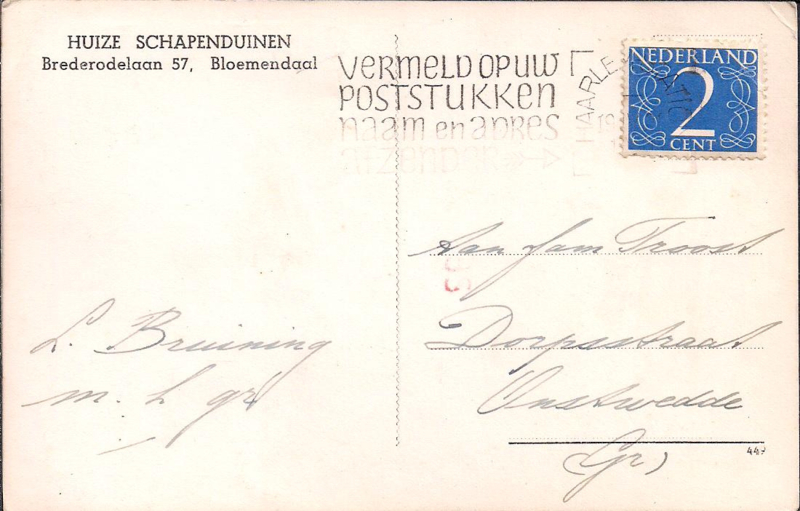 HUIZE SCHAPENDUINEN
Brederodelaan 57, Bloemendaal
VERMELD OP UW
POSTSTUKKEN
NAAM en ADRES
AFZENDER
HAARLE
19
NEDERLAND
2
CENT
Aan fam Troost
Dorpsstraat
Onstwedde
(Gr)
L. Bruining
m. h gr
447